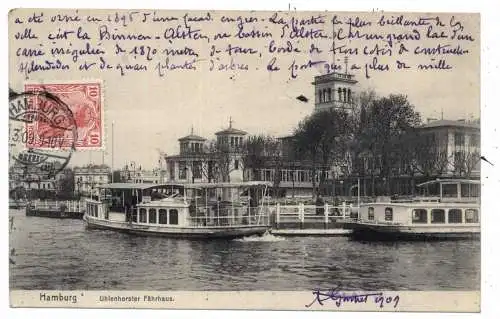 a été orné en 1895 d'une façad. en grès. La partie la plus brillante de la
ville est la Binnen-Alster, ou bassin d'Alster. C'est un grand lac d'un
carré irrégulier de 1870 mètres de tour, bordé de trois côtés de constructions
splendides et de quais plantés d'arbres. Le port qui a plus de mille
10 10
HAMBURG
3.09
Hamburg Uhlenhorster Fährhaus.
1909